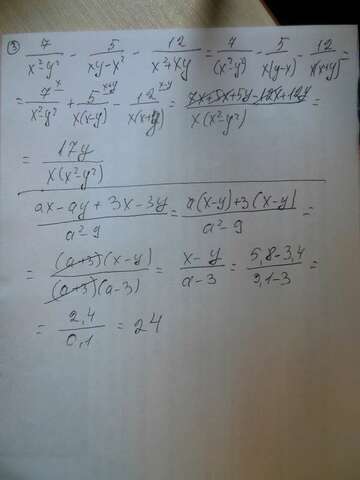 ③ 7/(x²-y²) - 5/(xy-x²) - 12/(x²+xy) = 7/(x²-y²) - 5/(x(y-x)) - 12/(x(x+y)) =
= 7^x/(x²-y²) + 5^(x+y)/(x(x-y)) - 12^(x-y)/(x(x+y)) = (7x+5x+5y-12x+12y)/(x(x²-y²)) =
= 17y/(x(x²-y²))
(ax-ay+3x-3y)/(a²-9) = (a(x-y)+3(x-y))/(a²-9) =
= ((a+3)(x-y))/((a+3)(a-3)) = (x-y)/(a-3) = (5,8-3,4)/(3,1-3) =
= 2,4/0,1 = 24